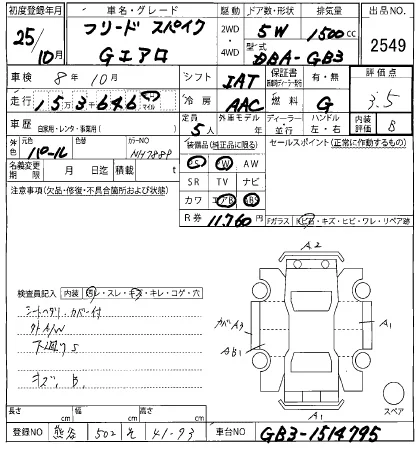 初度登録年月 車名・グレード 駆動 ドア数・形状 排気量 出品NO.
25/10月 フリード スパイク Gエアロ 2WD・4WD 5W 1500cc 2549
型式 DBA-GB3
車検 8年10月 シフト IAT 保証書 有・無 評価点
走行 15万3千646キロ マイル 冷房 AAC 燃料 G 3.5
車歴 自家用・レンタ・事業用( ) 定員 5人 外車モデル ディーラー・並行 ハンドル 左・右 内装評価 B
外色 元色 パール 色替 カラーNO NH788P
装備品(純正品に限る) セールスポイント(正常に作動するもの)
PS PW AW
名義変更期限 月 日迄 積載 t
SR TV ナビ
注意事項(欠品・修復・不具合箇所および状態)
カワ エアB ABS
R券 11,760円
Fガラス 飛石・キズ・ヒビ・ワレ・リペア跡
A2
検査員記入 内装 汚レ・スレ・キズ・キレ・コゲ・穴
シートヘタリ、カバー付
外A/W
下廻りS
キズ、B、
カバーA3
AB1
A1
A1
スペア
長さ cm 幅 cm 高さ cm
登録NO 熊谷 502 そ 41-93 車台NO GB3-1514795